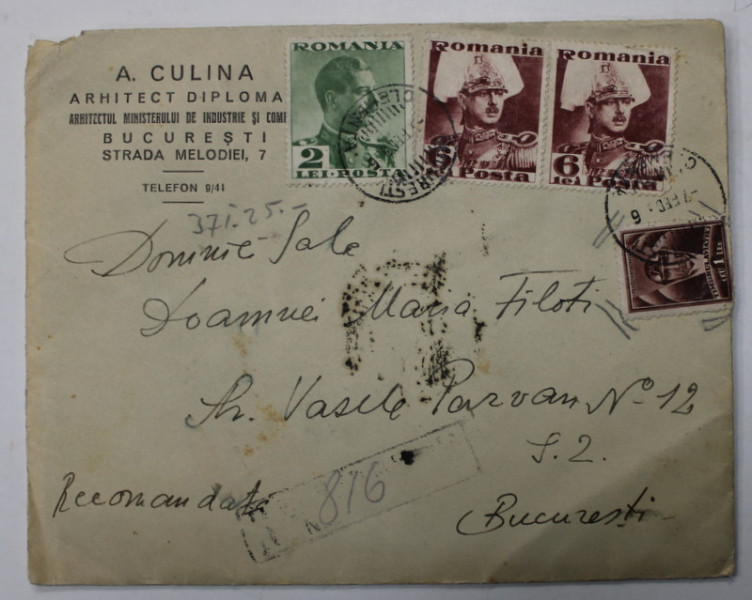 A. CULINA
ARHITECT DIPLOMA
ARHITECTUL MINISTERULUI DE INDUSTRIE ȘI COM
BUCUREȘTI
STRADA MELODIEI, 7
TELEFON 9/41
ROMANIA
2
LEI·POST
Romania
6
lei Posta
Romania
6
lei Posta
1 LEU
FEB
6
371.25.-
Domnie Sale
Doamnei Maria Filoti
Str. Vasele Parvan No 12
S. 2.
Recomandată
București
N
816